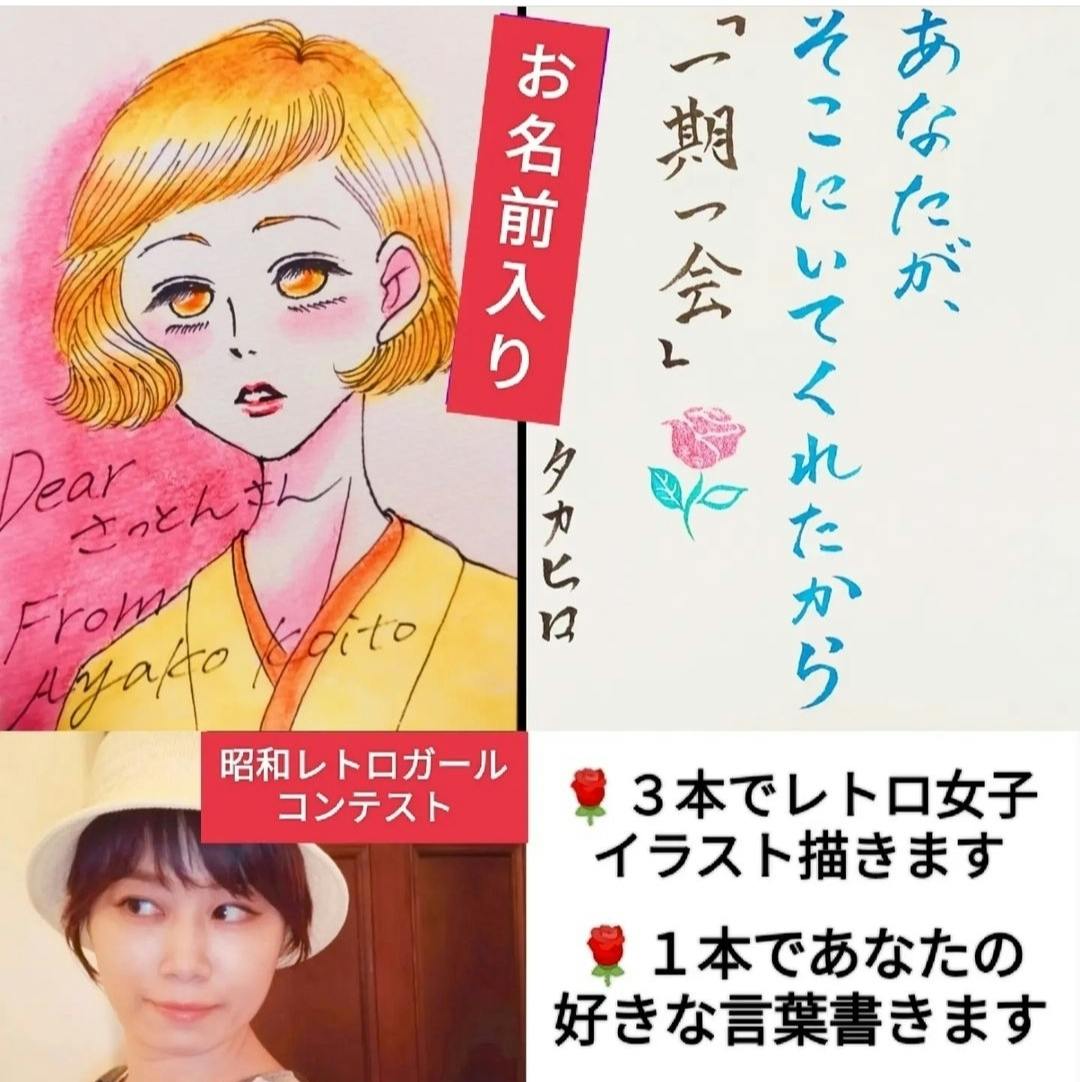 お名前入り
Dear
さっとんさん
From
Ayako Koito
あなたが、
そこにいてくれたから
「一期一会」
タカヒロ
昭和レトロガール
コンテスト
🌹３本でレトロ女子
イラスト描きます
🌹１本であなたの
好きな言葉書きます